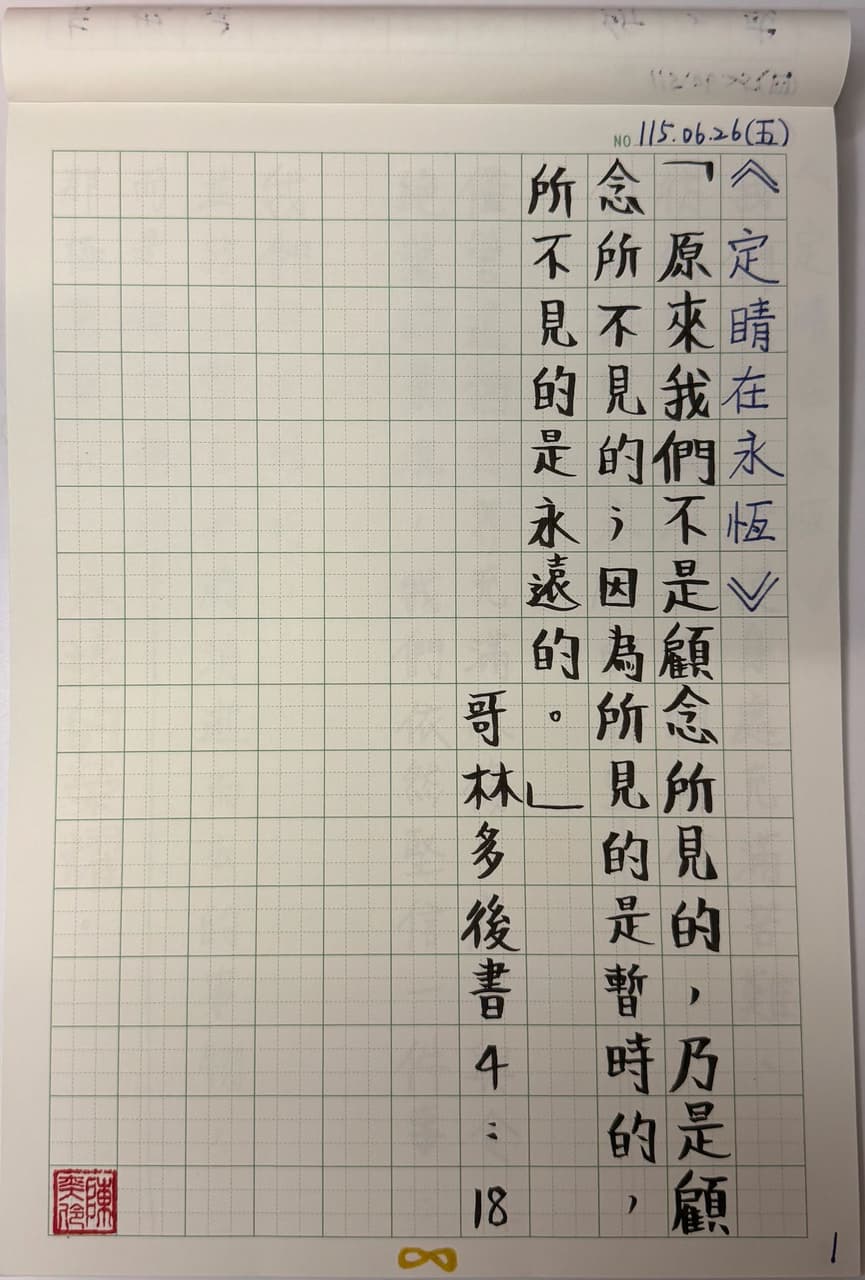 NO 115.06.26(五)
《定睛在永恆》
「原來我們不是顧念所見的，乃是顧
念所不見的；因為所見的是暫時的，
所不見的是永遠的。」
哥林多後書4：18
1